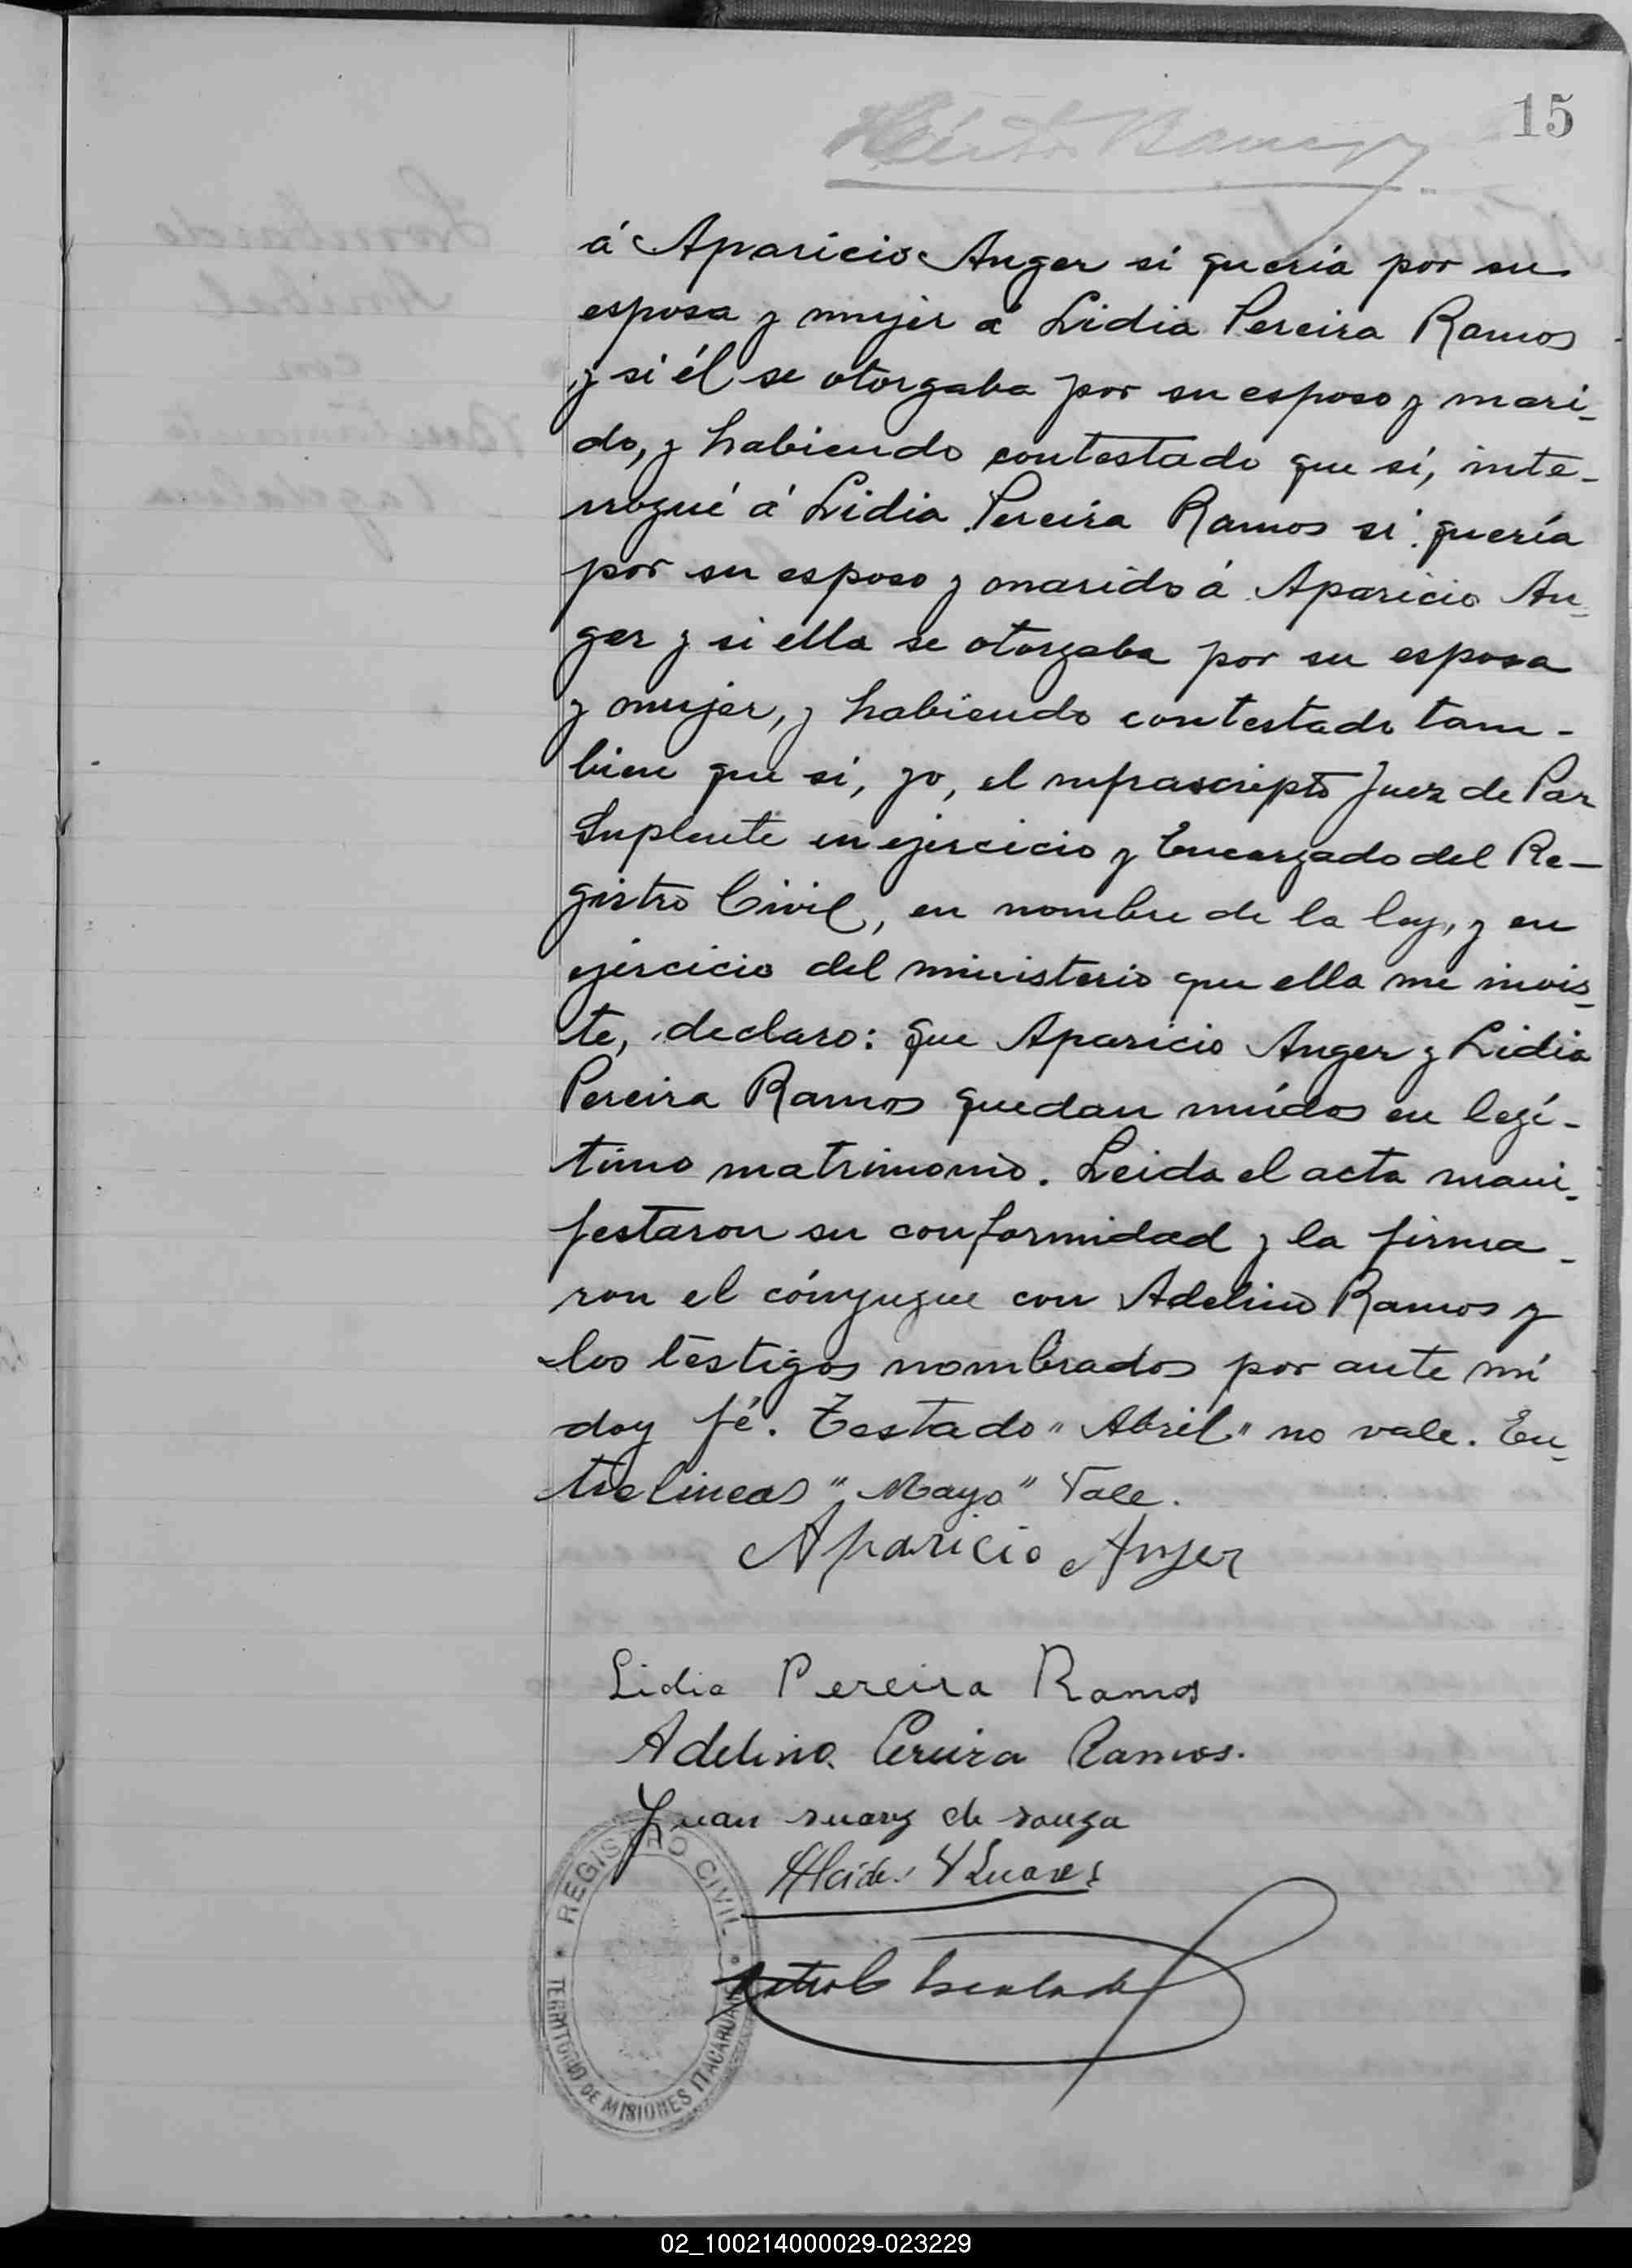 15
á Aparicio Anger si quería por su
esposa y mujer á Lidia Pereira Ramos
y si él se otorgaba por su esposo y mari-
do, y habiendo contestado que sí, inte-
rrogué á Lidia Pereira Ramos si quería
por su esposo y marido á Aparicio An-
ger y si ella se otorgaba por su esposa
y mujer, y habiendo contestado tam-
bien que sí, yo, el infrascripto Juez de Paz
Suplente en ejercicio y Encargado del Re-
gistro Civil, en nombre de la ley, y en
ejercicio del ministerio que ella me invis-
te, declaro: que Aparicio Anger y Lidia
Pereira Ramos quedan unidos en legí-
timo matrimonio. Leida el acta mani-
festaron su conformidad y la firma-
ron el cónyugue con Adelino Ramos y
los testigos nombrados por ante mí
doy fé. Testado "Abril" no vale. En-
trelineas "Mayo" Vale.
Aparicio Anger
Lidia Pereira Ramos
Adelino Pereira Ramos.
Juan suarez de souza
Alcides V Suares
REGISTRO CIVIL
TERRITORIO DE MISIONES ITACARUARÉ
02_100214000029-023229